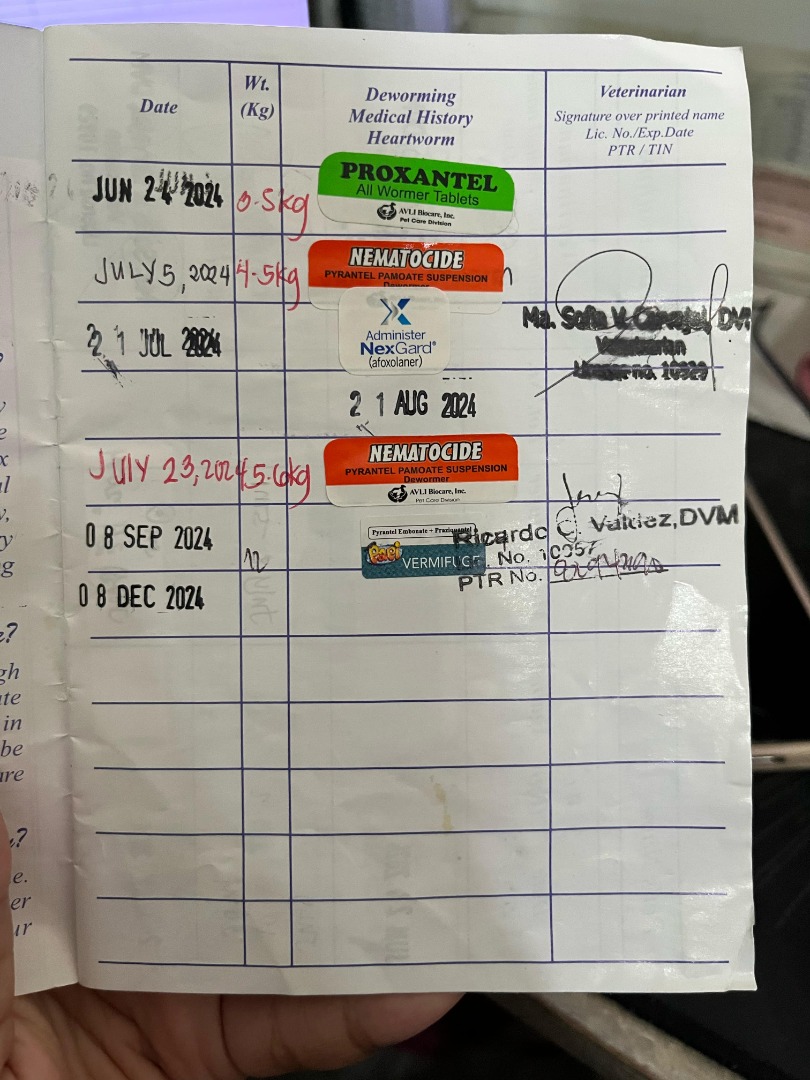 Date
Wt.
(Kg)
Deworming
Medical History
Heartworm
Veterinarian
Signature over printed name
Lic. No./Exp.Date
PTR / TIN
JUN 24 2024
0.5kg
PROXANTEL
All Wormer Tablets
AVLI Biocare, Inc.
Pet Care Division
JULY 5, 2024
4.5kg
NEMATOCIDE
PYRANTEL PAMOATE SUSPENSION
Dewormer
21 JUL 2024
Administer
NexGard®
(afoxolaner)
Ma. Sofia V. DVM
Veterinarian
21 AUG 2024
JULY 23, 2024
5.6kg
NEMATOCIDE
PYRANTEL PAMOATE SUSPENSION
Dewormer
AVLI Biocare, Inc.
Pet Care Division
08 SEP 2024
12
Pyrantel Embonate + Praziquantel
VERMIFUGE
Ricardo C. Valdez, DVM
No. 10957
PTR No.
08 DEC 2024
?
gh
te
in
be
are
?
e.
er
ur